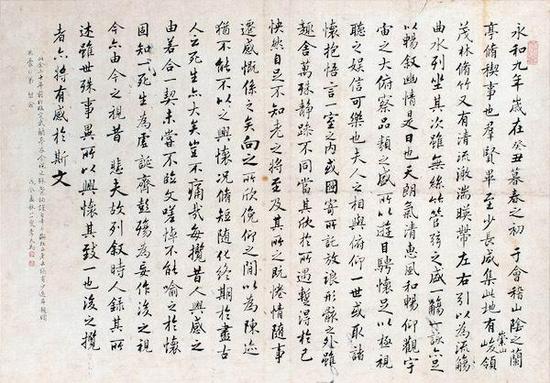 永和九年歲在癸丑暮春之初于會稽山陰之蘭
亭脩稧事也群賢畢至少長咸集此地有崇山峻領
茂林脩竹又有清流激湍暎帶左右引以為流觴
曲水列坐其次雖無絲竹管弦之盛一觴一詠亦足
以暢叙幽情是日也天朗氣清惠風和暢仰觀宇
宙之大俯察品類之盛所以遊目騁懷足以極視
聽之娛信可樂也夫人之相與俯仰一世或取諸
懷抱悟言一室之內或因寄所託放浪形骸之外雖
趣舍萬殊靜躁不同當其欣於所遇蹔得於己
怏然自足不知老之將至及其所之既惓情隨事
遷感慨係之矣向之所欣俛仰之閒以為陳迹
猶不能不以之興懷況脩短隨化終期於盡古
人云死生亦大矣豈不痛哉每攬昔人興感之
由若合一契未嘗不臨文嗟悼不能喻之於懷
固知一死生為虛誕齊彭殤為妄作後之視
今亦由今之視昔 悲夫故列叙時人錄其所
述雖世殊事異所以興懷其致一也後之攬
者亦將有感於斯文